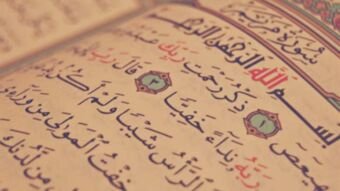 سُورَةُ مَرْيَمَ
سْمِ اللَّهِ الرَّحْمَٰنِ
يعص ١ ذِكْرُ رَحْمَتِ رَبِّكَ
رَبَّهُ نِدَاءً خَفِيًّا ٣ قَالَ رَبِّ
الرَّأْسُ شَيْبًا وَلَمْ أَكُن
خِفْتُ الْمَوَالِيَ مِن وَرَاءِي
مِن لَّدُنكَ